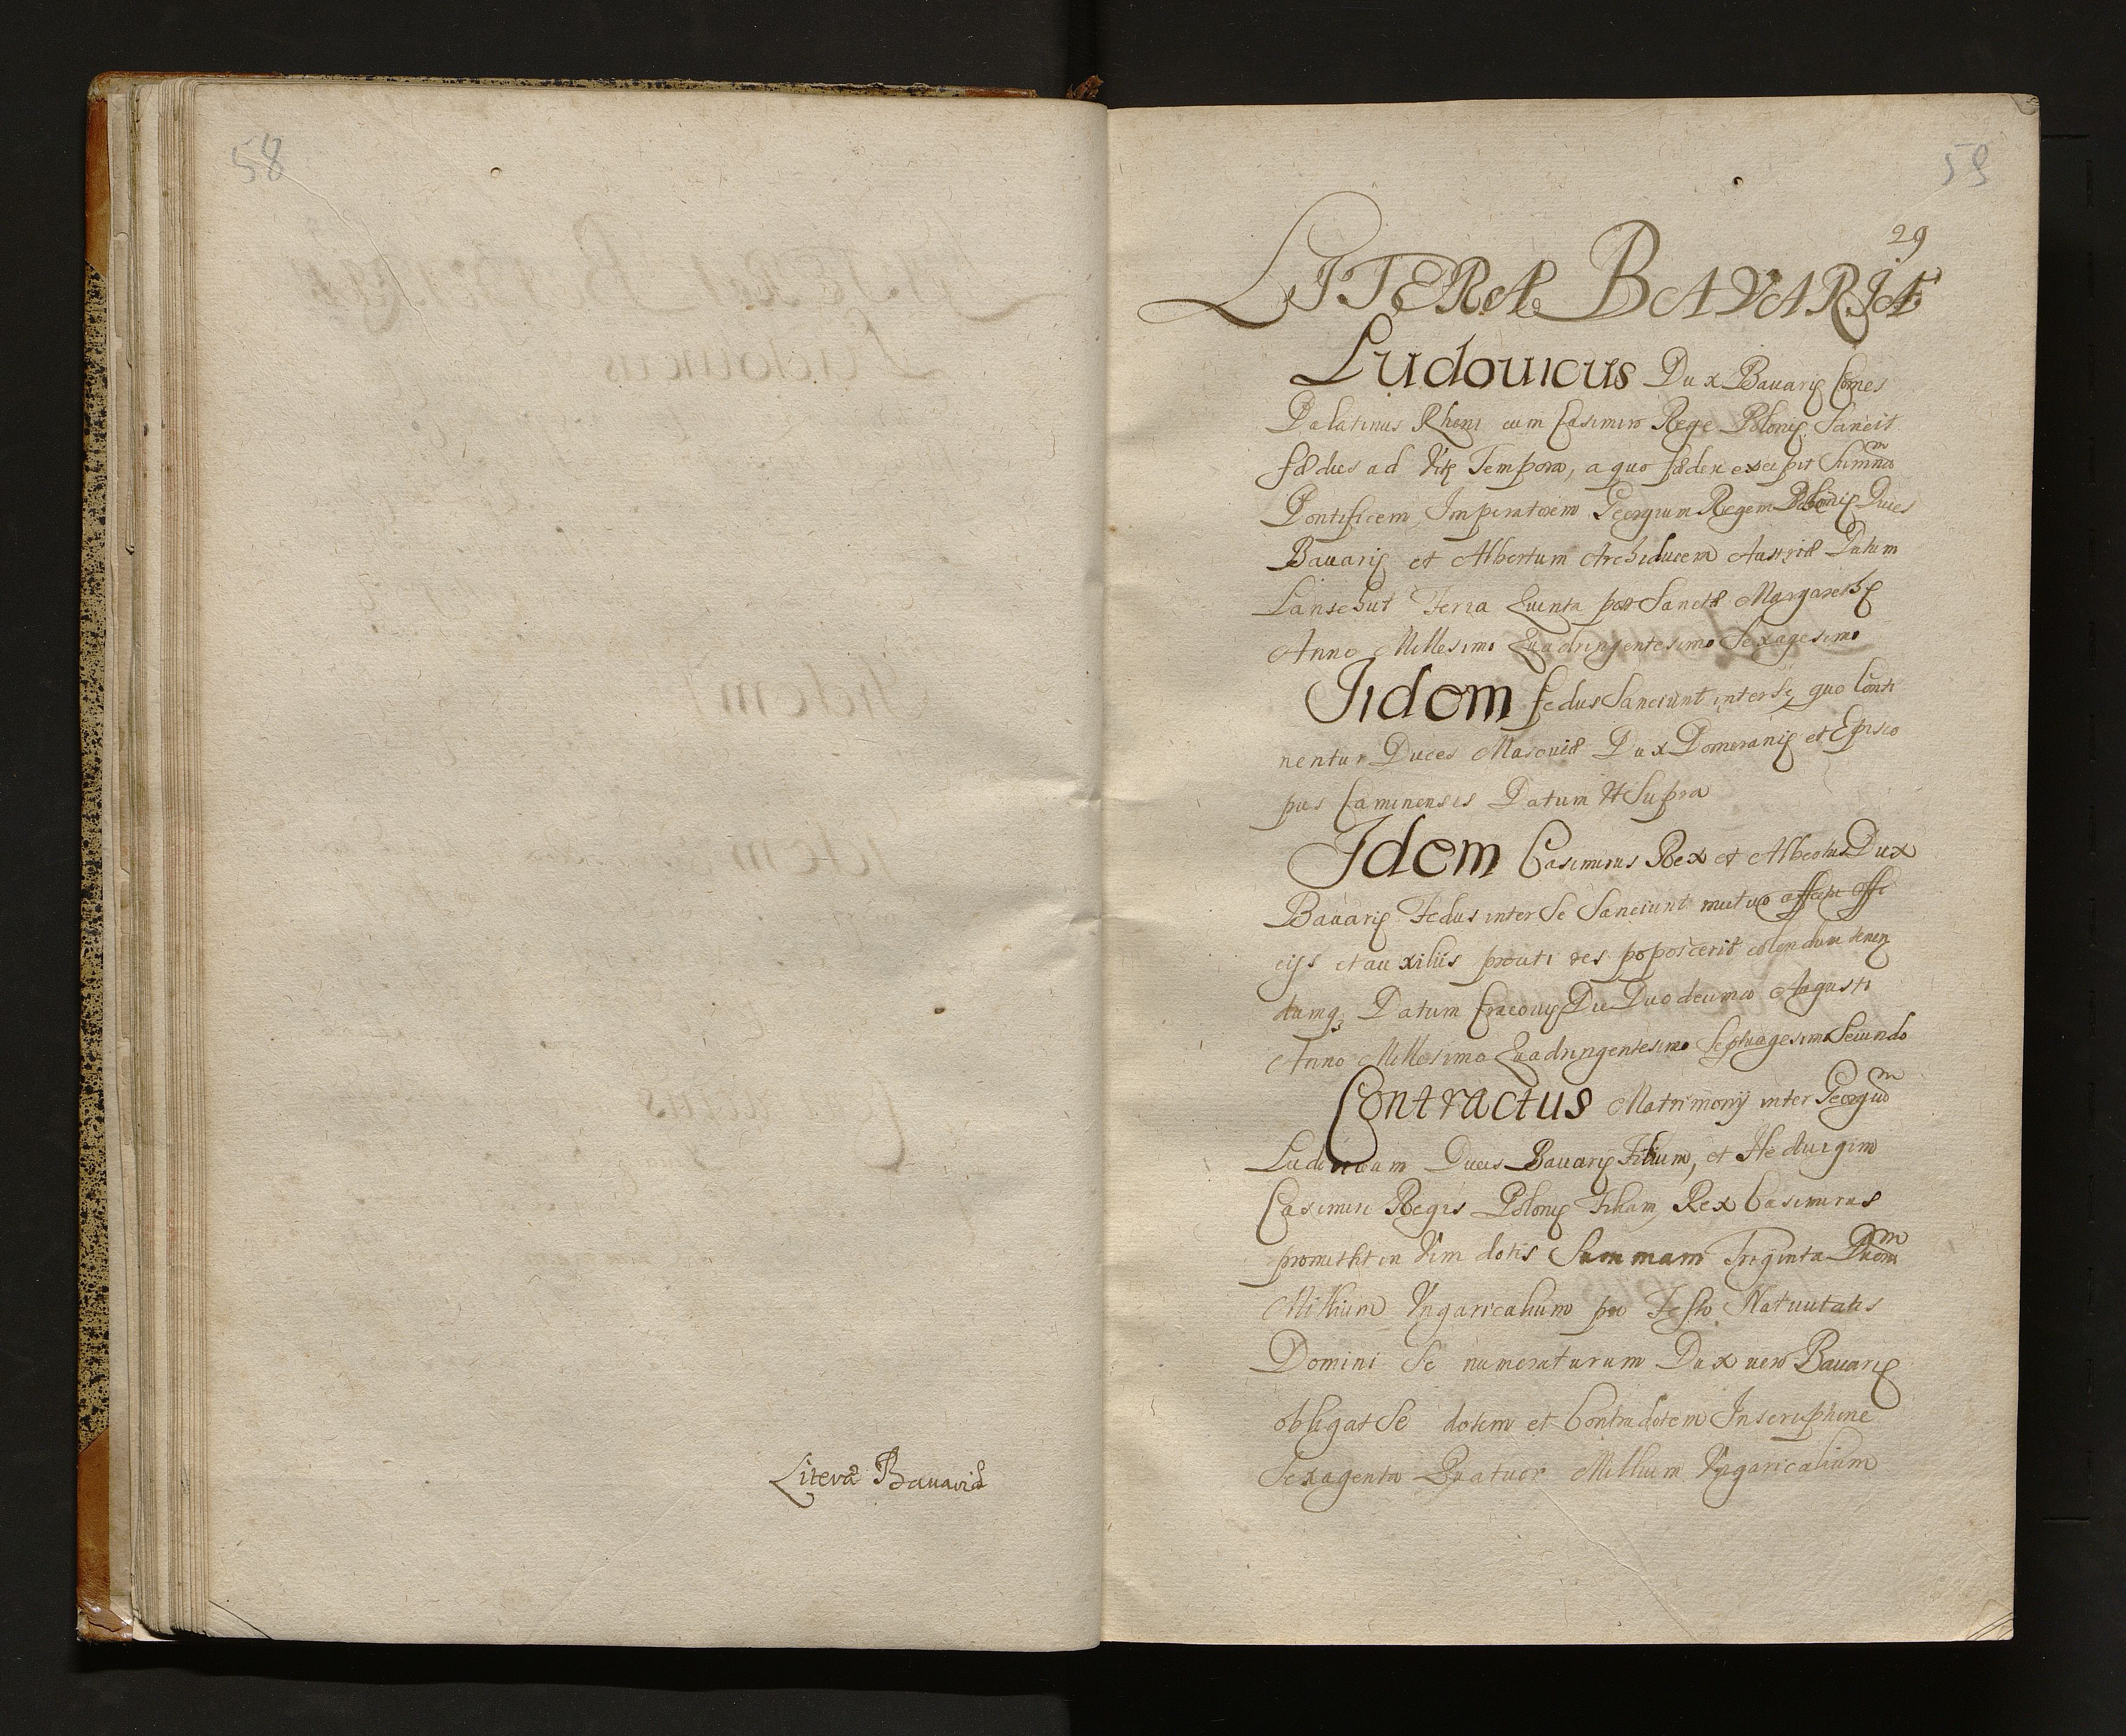 58
Literæ Bauariæ
59
29
LITERÆ BAVARIÆ
Ludouicus Dux Bauarię Comes
Palatinus Rheni cum Casimiro Rege Polonię Sancit
fædus ad Vitę Tempora, a quo fædere excepit Summũ
Pontificem, Imperatorem Georgium Regem Duces
Bauarię et Albertum Archiducem Austriæ Datum
Lanschut Feria Quinta post Sanctæ Margarethę
Anno Millesimo Quadringentesimo Sexagesimo
Iidem fedus Sanciunt inter Se, quo Conti
nentur Duces Masouiæ Dux Pomeranię et Episco
pus Caminensis Datum Vt Supra
Idem Casimirus Rex et Albertus Dux
Bauarię Fedus inter Se Sanciunt mutuo offi
cijs et auxiliis prouti res poposcerit colendum tenen
dumq3 Datum Cracouię Die Duodecima Augusti
Anno Millesimo Quadringentesimo Septuagesimo Secundo
Contractus Matrimonij inter Georgiũ
Ducis Bauarię Filium, et Heduigim
Casimiri Regis Polonię Filiam, Rex Casimirus
promittit in Vim dotis Summam Triginta Duorũ
Millium Vngaricalium pro Festo Natiuitatis
Domini Se numeraturum Dux uero Bauarię
obligat Se dotem et Contradotem Inscriptione
Sexaginta Quatuor Millium Vngaricalium